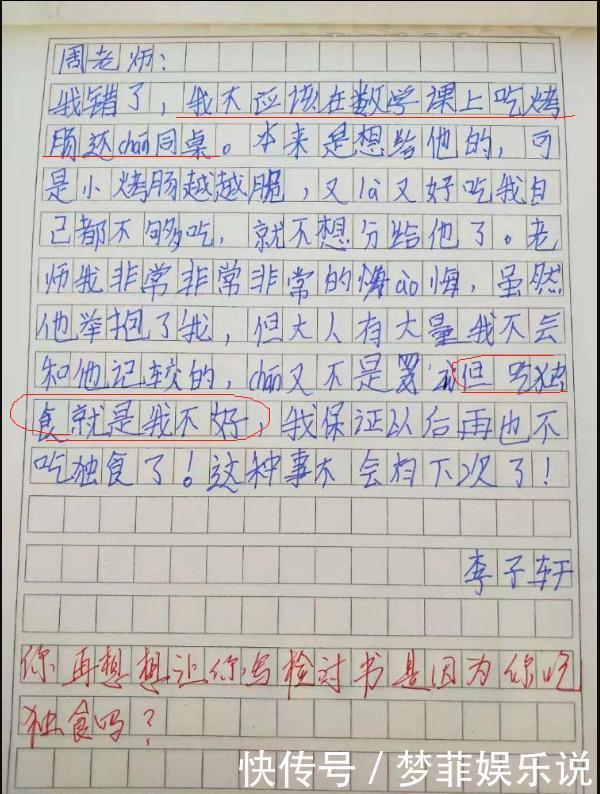 周老师：
我错了，我不应该在数学课上吃烤
肠还chán同桌。本来是想给他的，可
是小烤肠越越脆，又là又好吃我自
己都不够吃，就不想分给他了。老
师我非常非常非常的悔ào悔，虽然
他举抱了我，但大人有大量我不会
和他记较的，chán又不是罗但吃独
食就是我不好，我保证以后再也不
吃独食了！这种事不会有下次了！
李子轩
你再想想让你写检讨书是因为你吃
独食吗？
快传号/梦菲娱乐说